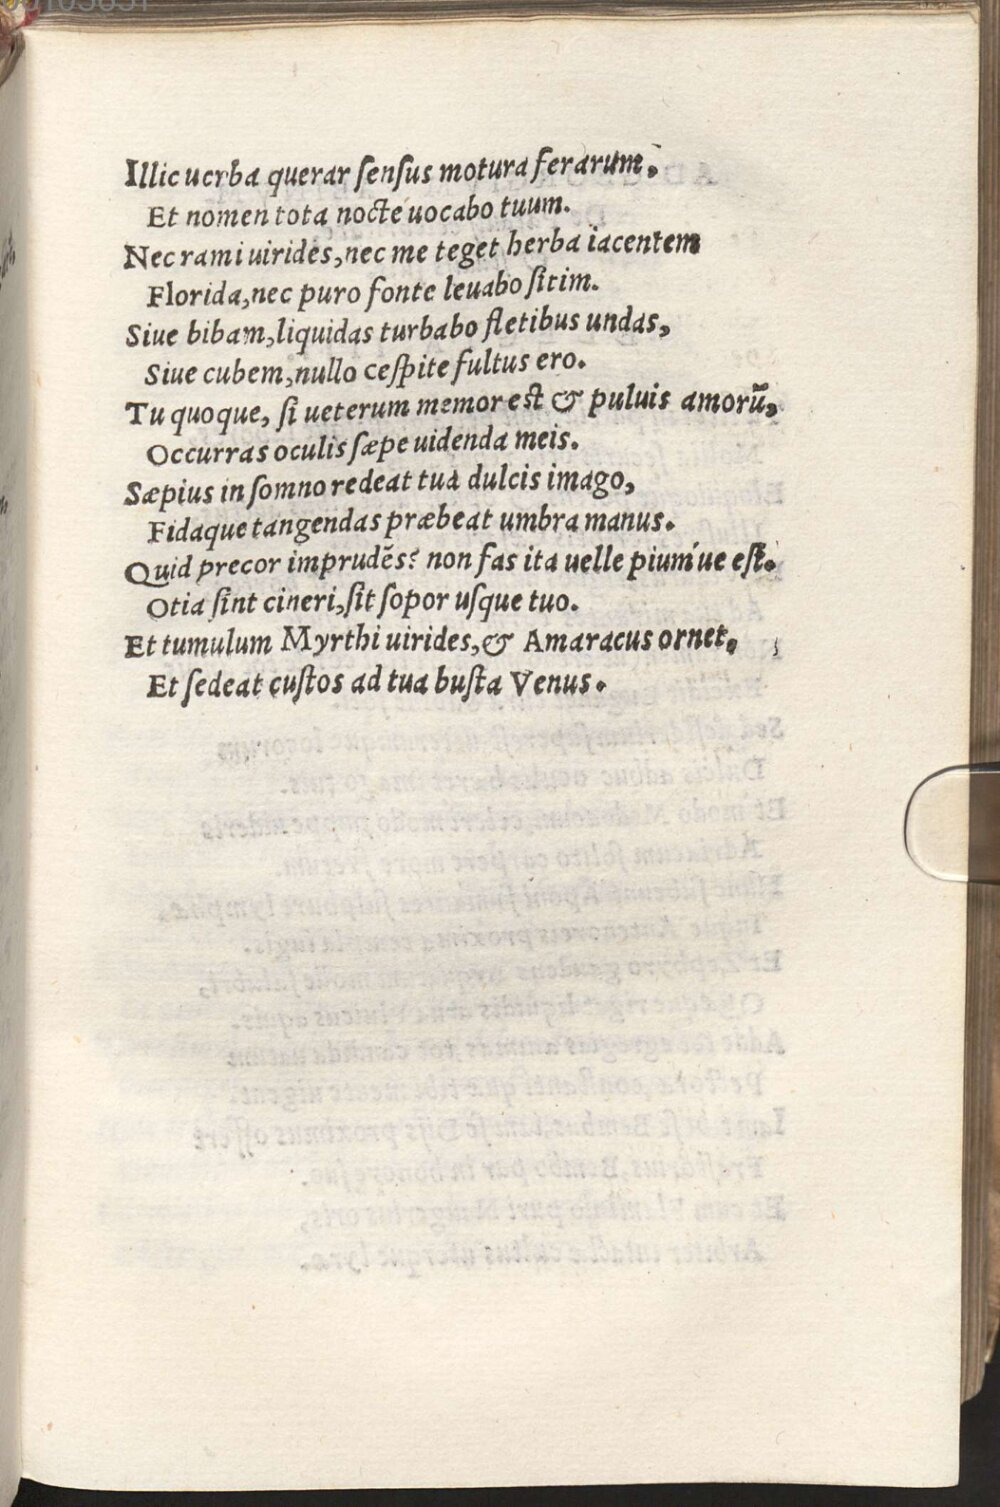 Illic uerba querar ſenſus motura ferarum.
Et nomen tota nocte uocabo tuum.
Nec rami uirides, nec me teget herba iacentem
Florida, nec puro fonte leuabo ſitim.
Siue bibam, liquidas turbabo fletibus undas,
Siue cubem, nullo ceſpite fultus ero.
Tu quoque, ſi ueterum memor est & puluis amorū,
Occurras oculis ſæpe uidenda meis.
Sæpius in ſomno redeat tua dulcis imago,
Fidaque tangendas præbeat umbra manus.
Quid precor imprudēs? non fas ita uelle pium'ue eſt.
Otia ſint cineri, ſit ſopor uſque tuo.
Et tumulum Myrthi uirides, & Amaracus ornet.
Et ſedeat cuſtos ad tua buſta Venus.